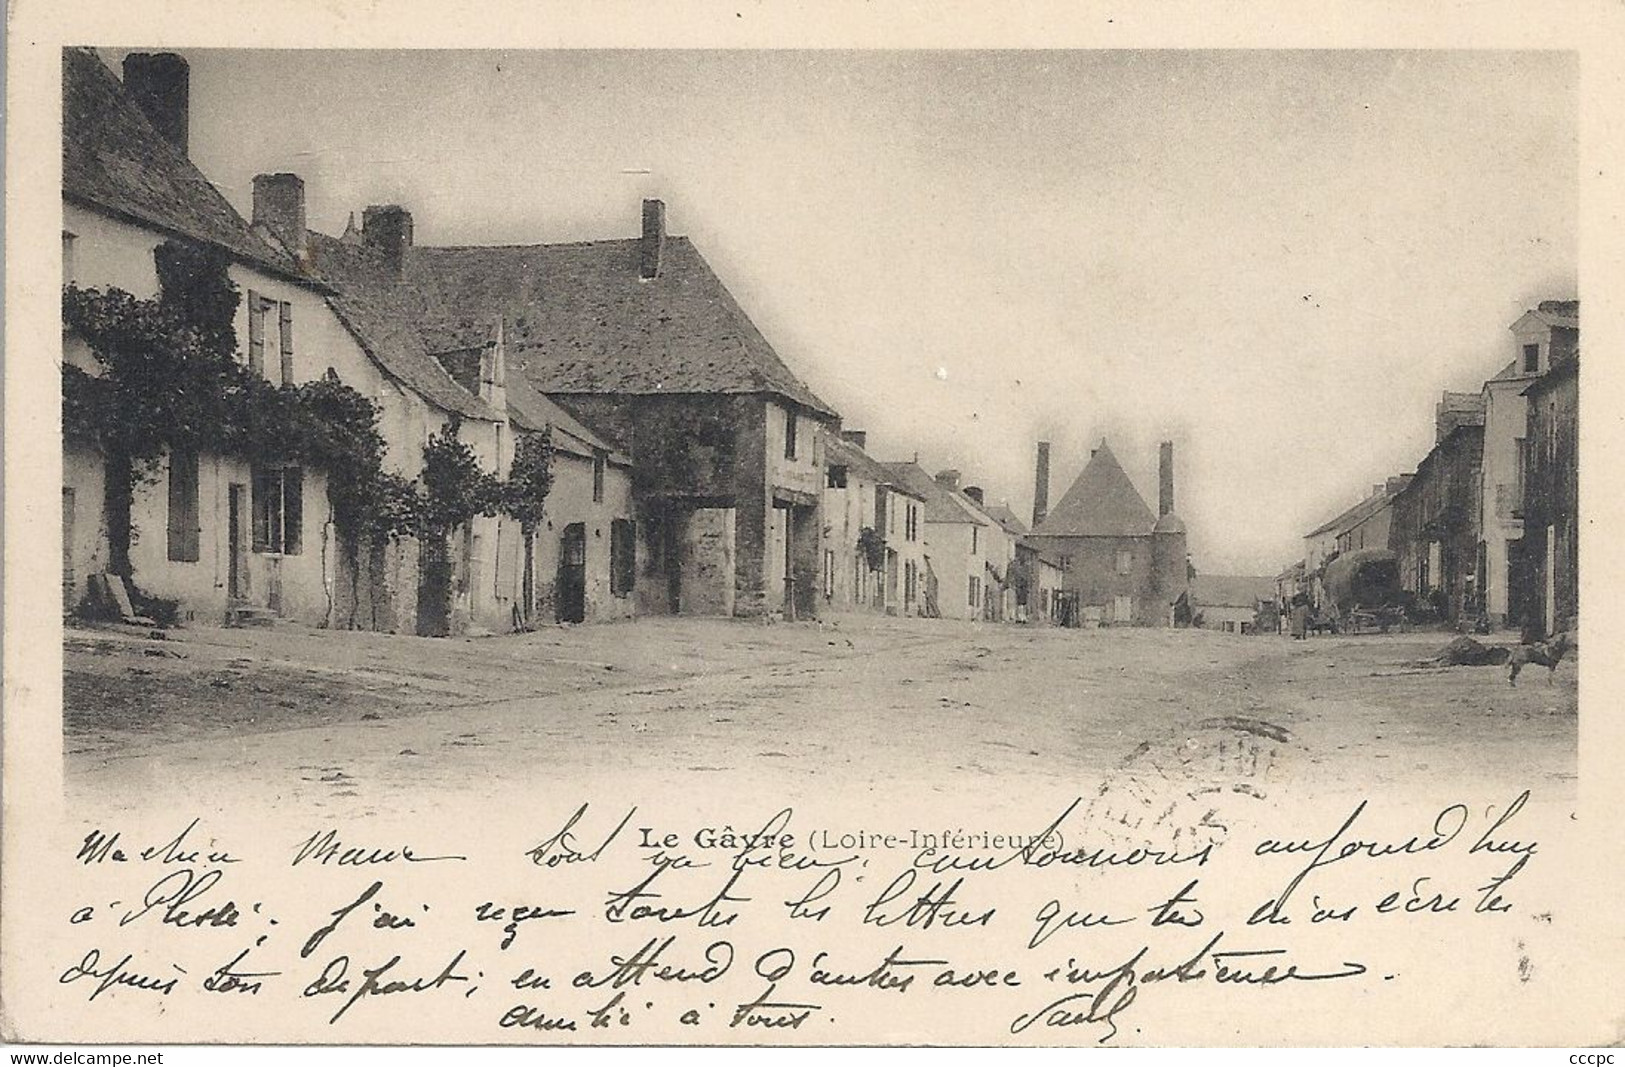 Le Gâvre (Loire-Inférieure)
Ma chère Marie tout va bien; cantonnons aujourd'hui
à Plessé; j'ai reçu toutes les lettres que tu m'as écrites
depuis ton départ; en attend d'autres avec impatience.
amitié à tous. Paul
www.delcampe.net
cccpc